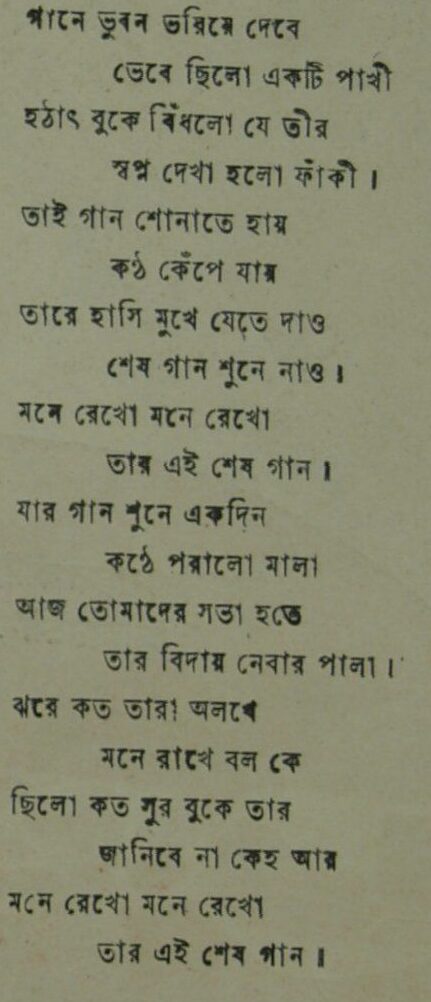 গানে ভুবন ভরিয়ে দেবে
ভেবে ছিলো একটি পাখী
হঠাৎ বুকে বিঁধলো যে তীর
স্বপ্ন দেখা হলো ফাঁকী ।
তাই গান শোনাতে হায়
কণ্ঠ কেঁপে যায়
তারে হাসি মুখে যেতে দাও
শেষ গান শুনে নাও ।
মনে রেখো মনে রেখো
তার এই শেষ গান ।
যার গান শুনে একদিন
কণ্ঠে পরালো মালা
আজ তোমাদের সভা হতে
তার বিদায় নেবার পালা ।
ঝরে কত তারা অলখে
মনে রাখে বল কে
ছিলো কত সুর বুকে তার
জানিবে না কেহ আর
মনে রেখো মনে রেখো
তার এই শেষ গান ।